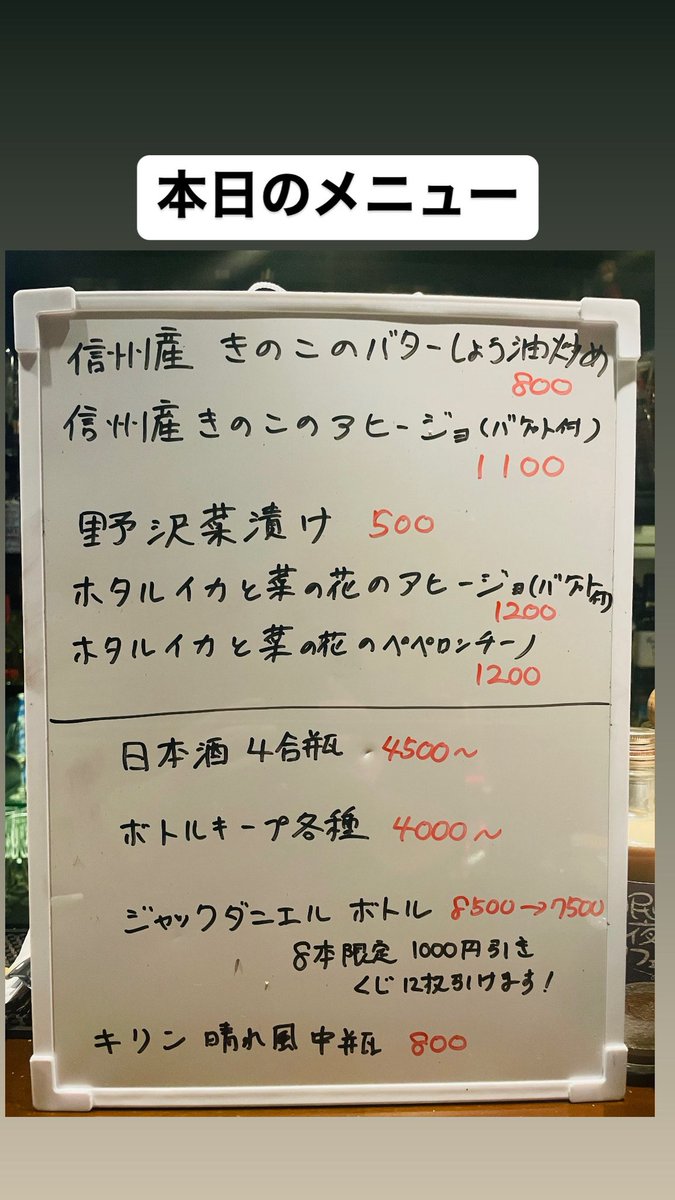 本日のメニュー
信州産 きのこのバターしょう油炒め
800
信州産きのこのアヒージョ(バケット付)
1100
野沢菜漬け 500
ホタルイカと菜の花のアヒージョ(バケット付)
1200
ホタルイカと菜の花のペペロンチーノ
1200
日本酒 4合瓶 4500〜
ボトルキープ各種 4000〜
ジャックダニエル ボトル 8500→7500
8本限定 1000円引き
くじ12枚引けます!
キリン 晴れ風 中瓶 800